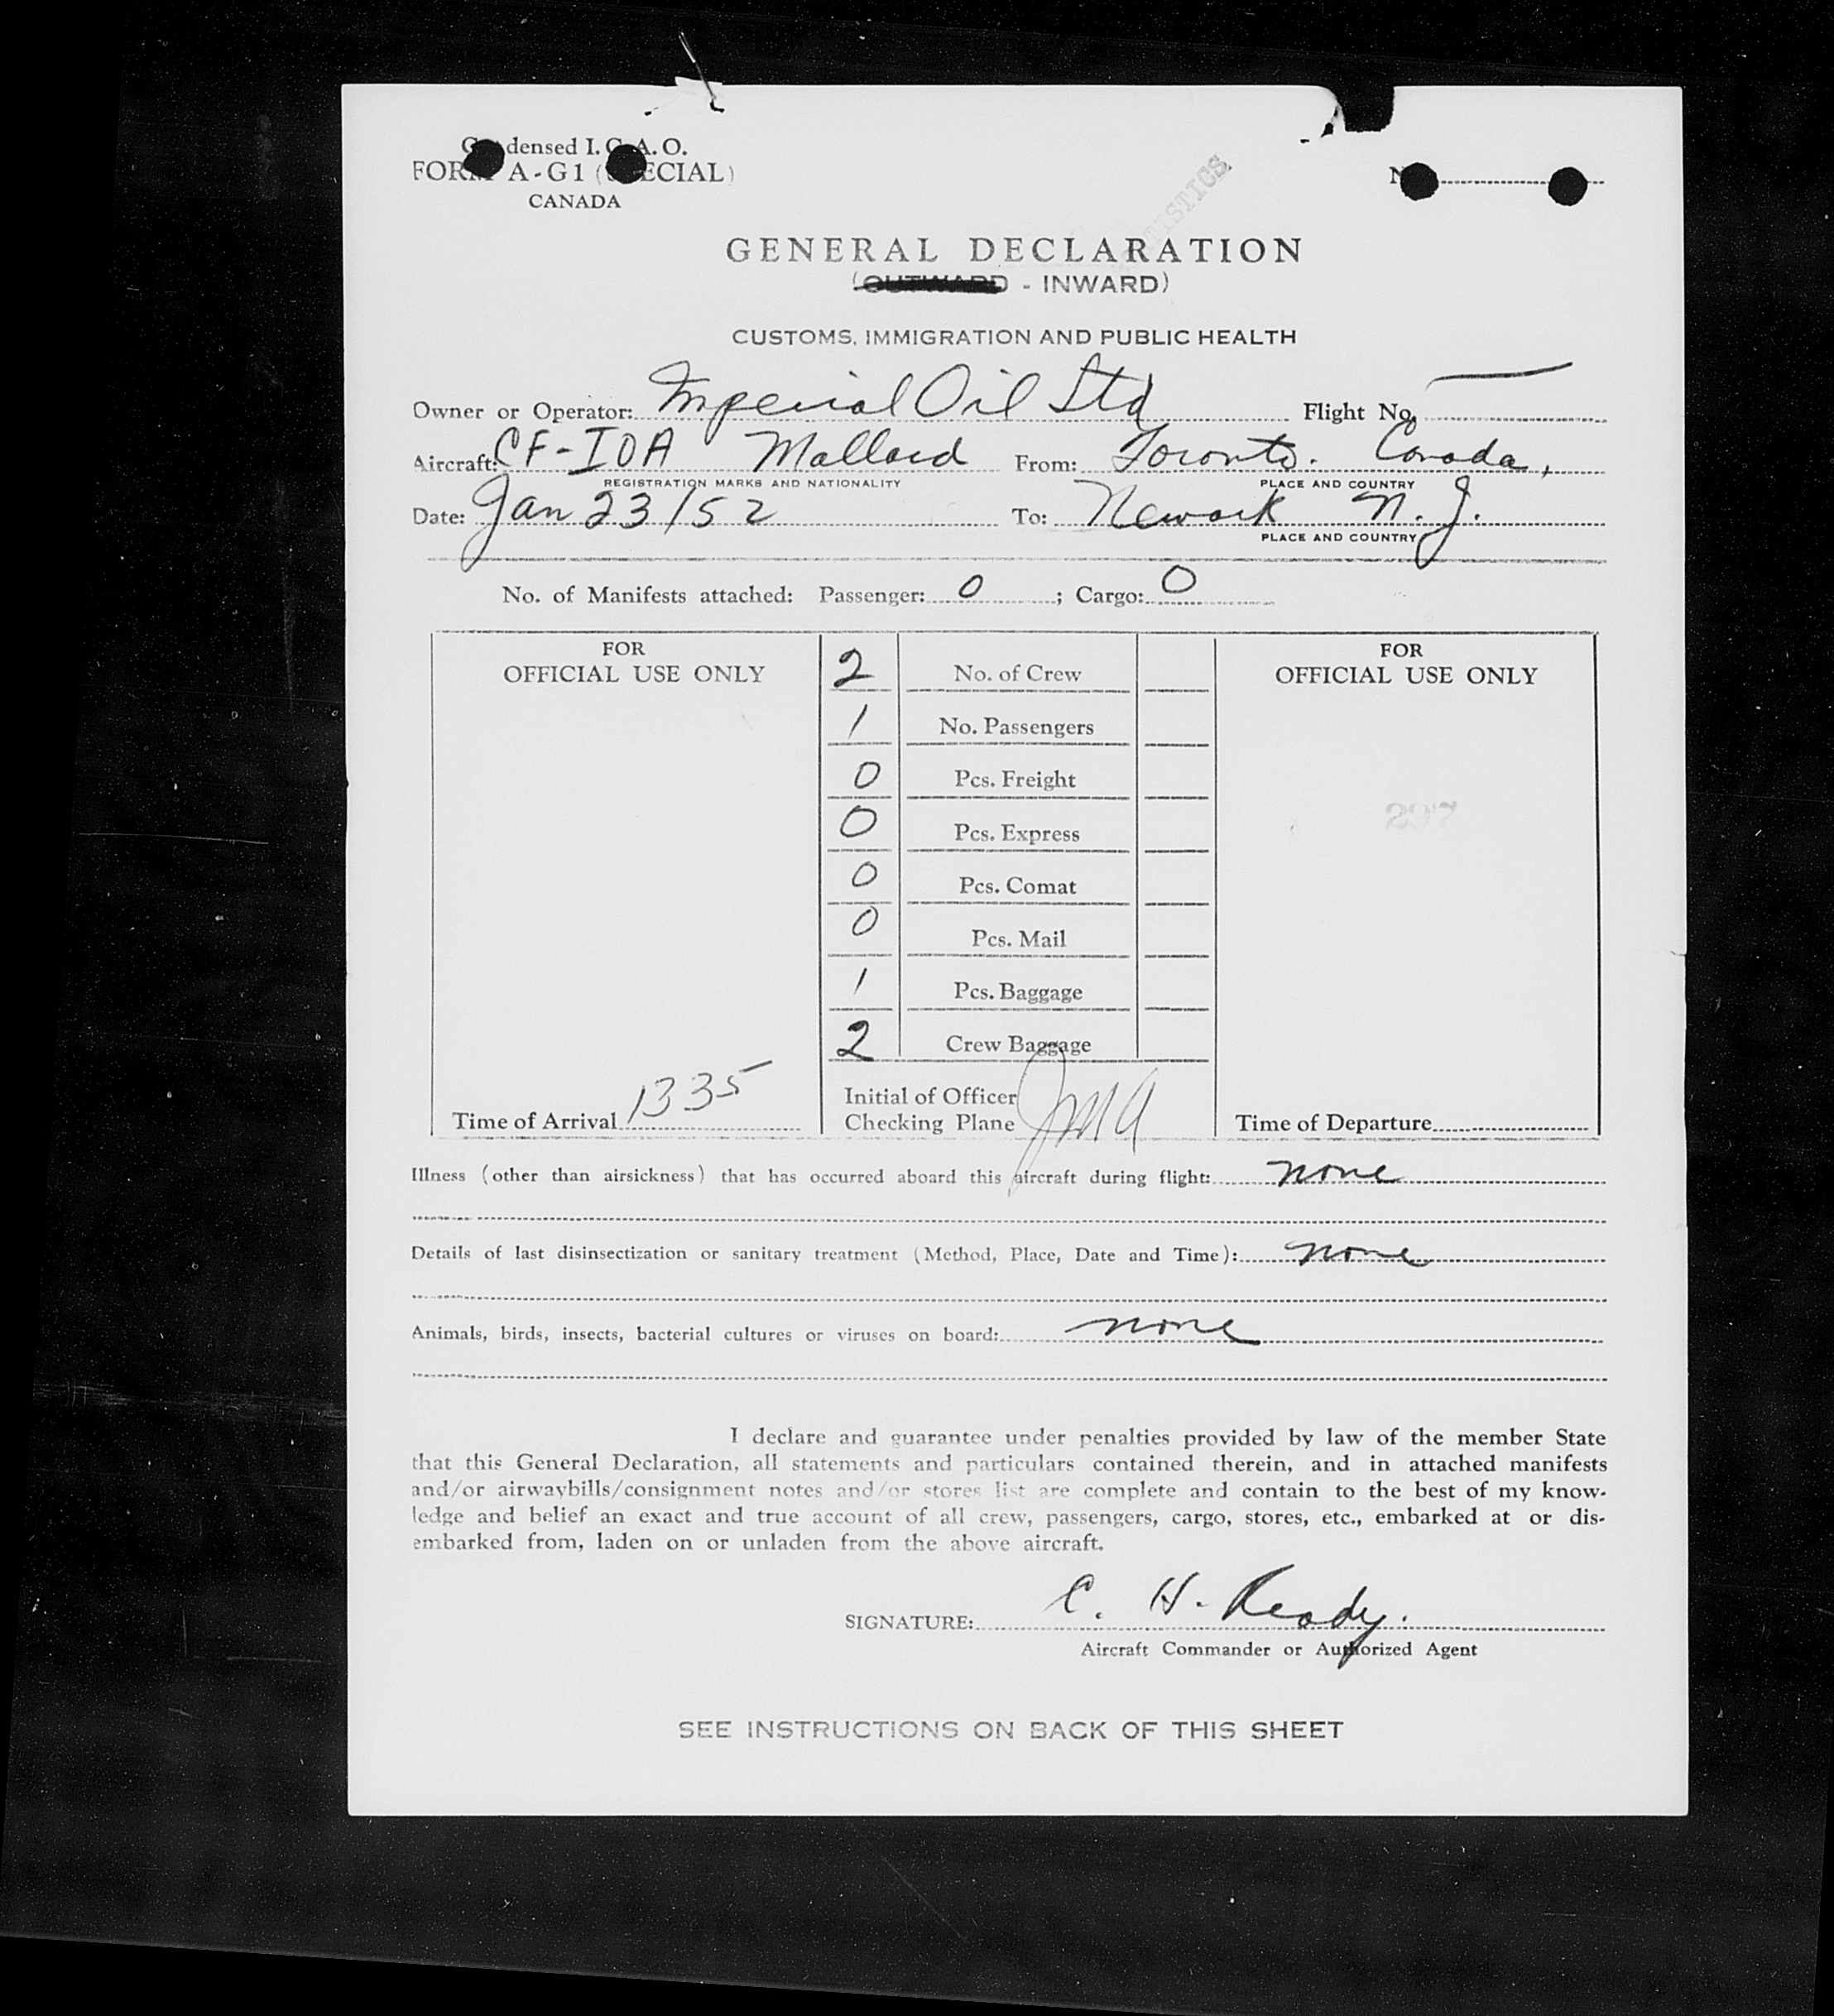 Condensed I. C. A. O.
FORM A-G1 (SPECIAL)
CANADA
GENERAL DECLARATION
(OUTWARD - INWARD)
CUSTOMS, IMMIGRATION AND PUBLIC HEALTH
Owner or Operator: Imperial Oil Ltd Flight No. —
Aircraft: CF-IOA Mallard From: Toronto. Canada,
REGISTRATION MARKS AND NATIONALITY PLACE AND COUNTRY
Date: Jan 23/52 To: Newark N.J.
PLACE AND COUNTRY
No. of Manifests attached: Passenger: 0 ; Cargo: 0
FOR
OFFICIAL USE ONLY
2 No. of Crew
1 No. Passengers
0 Pcs. Freight
0 Pcs. Express
0 Pcs. Comat
0 Pcs. Mail
1 Pcs. Baggage
2 Crew Baggage
Time of Arrival 1335
Initial of Officer
Checking Plane
FOR
OFFICIAL USE ONLY
Time of Departure
Illness (other than airsickness) that has occurred aboard this aircraft during flight: none
Details of last disinsectization or sanitary treatment (Method, Place, Date and Time): none
Animals, birds, insects, bacterial cultures or viruses on board: none
I declare and guarantee under penalties provided by law of the member State
that this General Declaration, all statements and particulars contained therein, and in attached manifests
and/or airwaybills/consignment notes and/or stores list are complete and contain to the best of my know-
ledge and belief an exact and true account of all crew, passengers, cargo, stores, etc., embarked at or dis-
embarked from, laden on or unladen from the above aircraft.
SIGNATURE: C. H. Ready.
Aircraft Commander or Authorized Agent
SEE INSTRUCTIONS ON BACK OF THIS SHEET